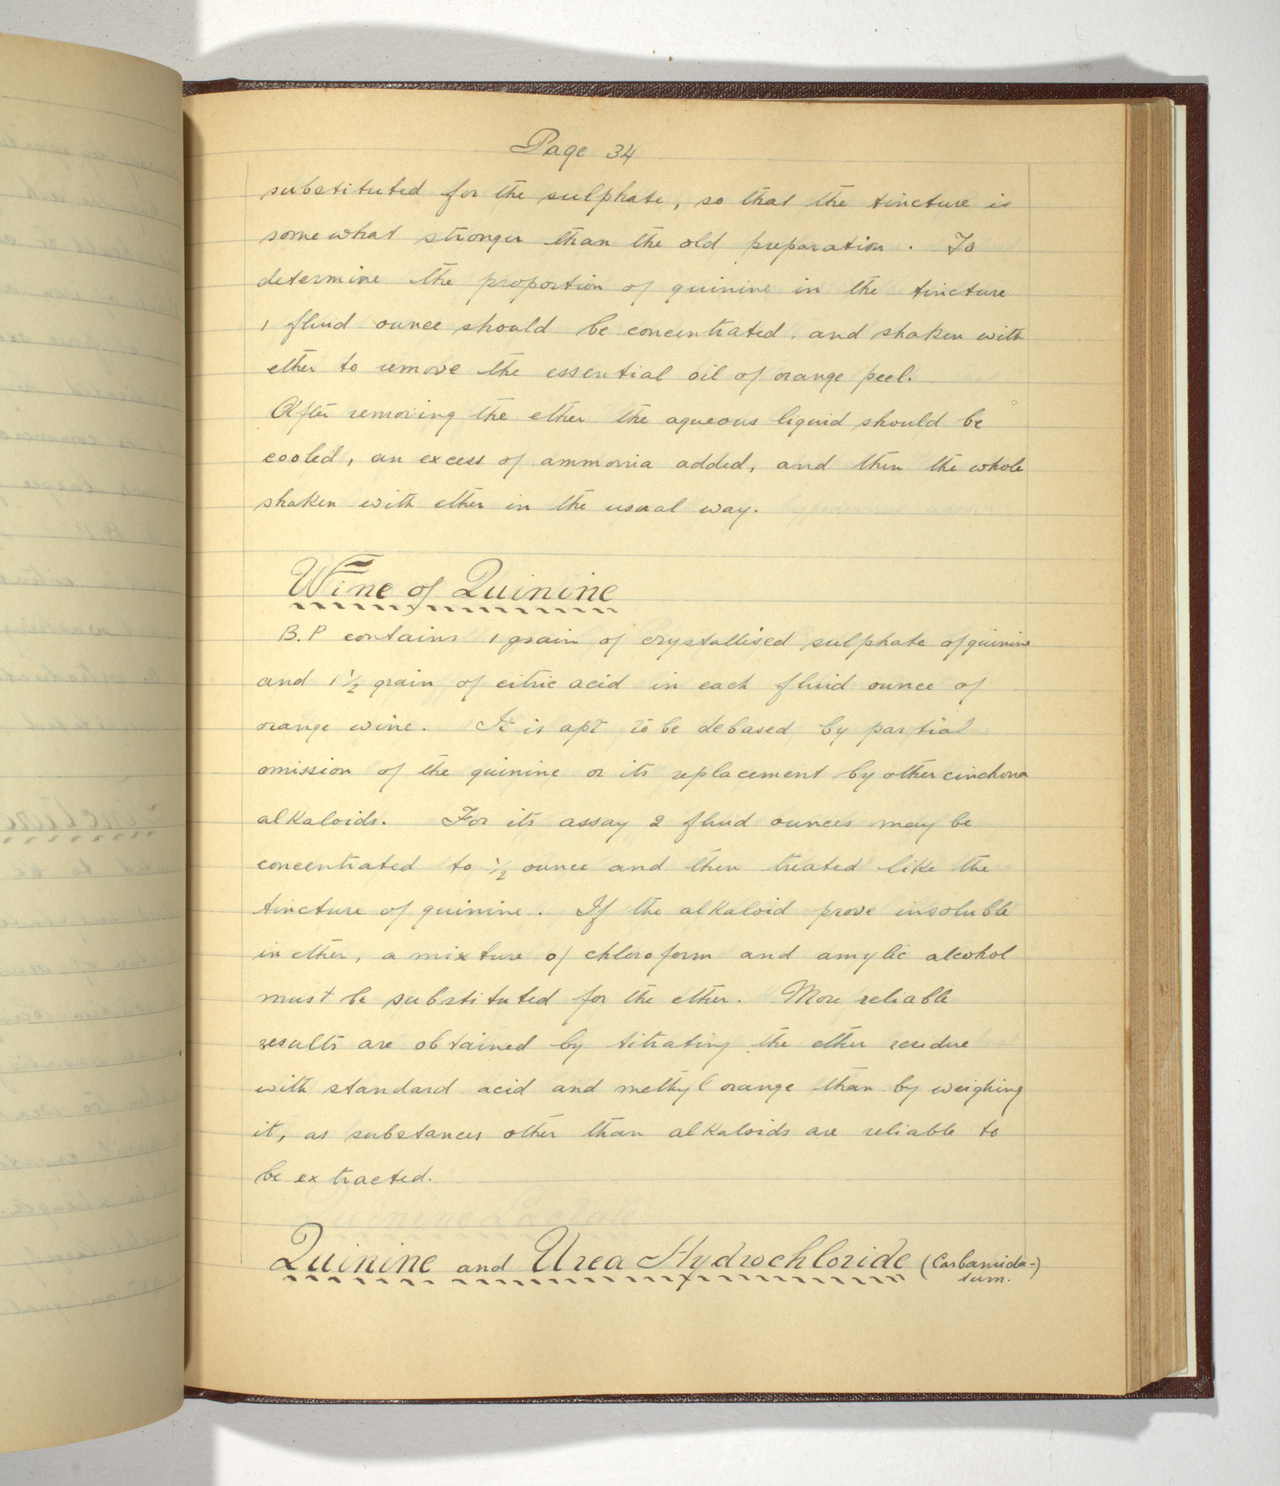 Page 34
substituted for the sulphate, so that the tincture is
somewhat stronger than the old preparation. To
determine the proportion of quinine in the tincture
1 fluid ounce should be concentrated, and shaken with
ether to remove the essential oil of orange peel.
After removing the ether the aqueous liquid should be
cooled, an excess of ammonia added, and then the whole
shaken with ether in the usual way.
Wine of Quinine
B.P contains 1 grain of crystallised sulphate of quinine
and 1 1/2 grain of citric acid in each fluid ounce of
orange wine. It is apt to be debased by partial
omission of the quinine or its replacement by other cinchona
alkaloids. For its assay 2 fluid ounces may be
concentrated to 1/2 ounce and then treated like the
tincture of quinine. If the alkaloid prove insoluble
in ether, a mixture of chloroform and amylic alcohol
must be substituted for the ether. More reliable
results are obtained by titrating the ether residue
with standard acid and methyl orange than by weighing
it, as substances other than alkaloids are reliable to
be extracted.
Quinine and Urea Hydrochloride (Carbamida-)
tum.